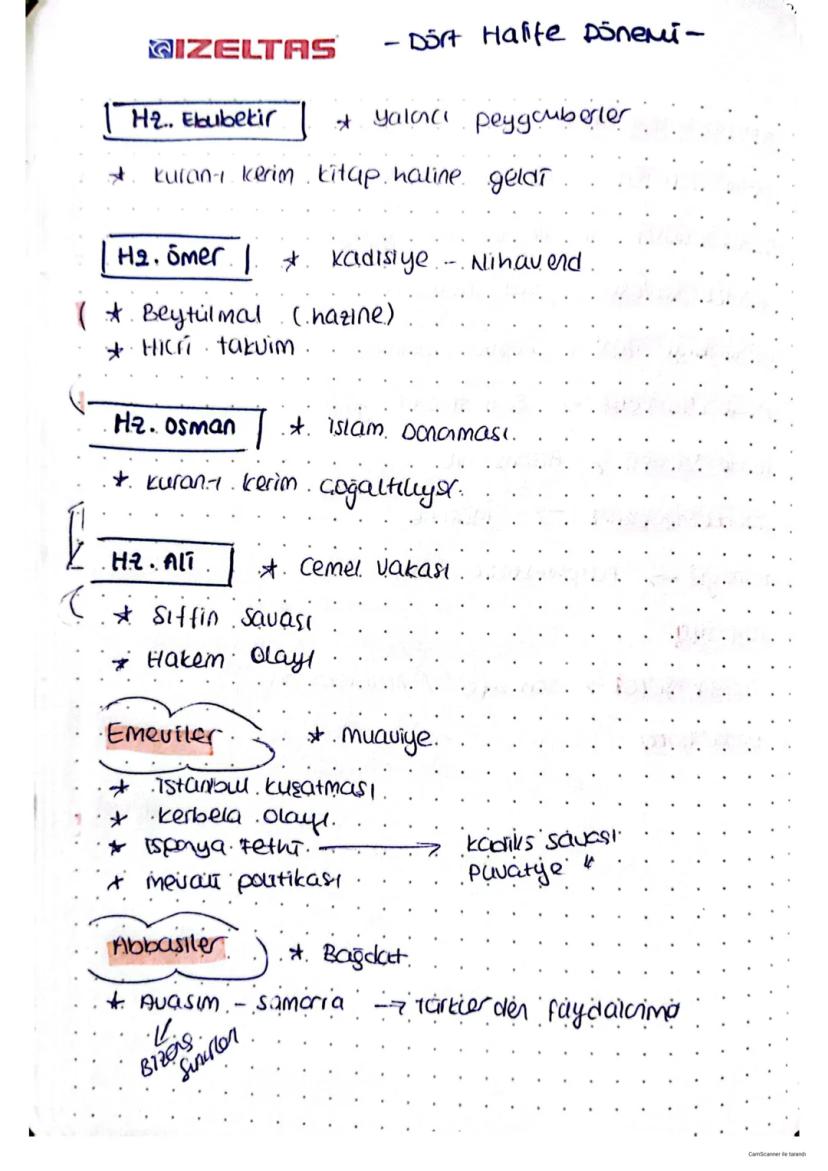 IZELTAS
- Dört Halife Dönemi -
Hz. Ebubekir * Yalancı peygamberler
* Kuran-ı Kerim kitap haline geldi
Hz. Ömer * Kadisiye - Nihavend
* Beytülmal (hazine)
* Hicri takvim
Hz. Osman * islam Donanması.
* Kuran-ı Kerim çoğaltılıyor.
Hz. Ali * Cemel Vakası
* Sıffin savaşı
* Hakem Olayı
Emeviler * Muaviye.
* istanbul kuşatması
* Kerbela olayı.
* ispanya Fethi. → Kadiks savaşı
Puvatye "
* mevali politikası
Abbasiler * Bağdat
* Avasım - samarra → Türklerden faydalanma
↓
Bizans
Sınırları
CamScanner ile tarandı